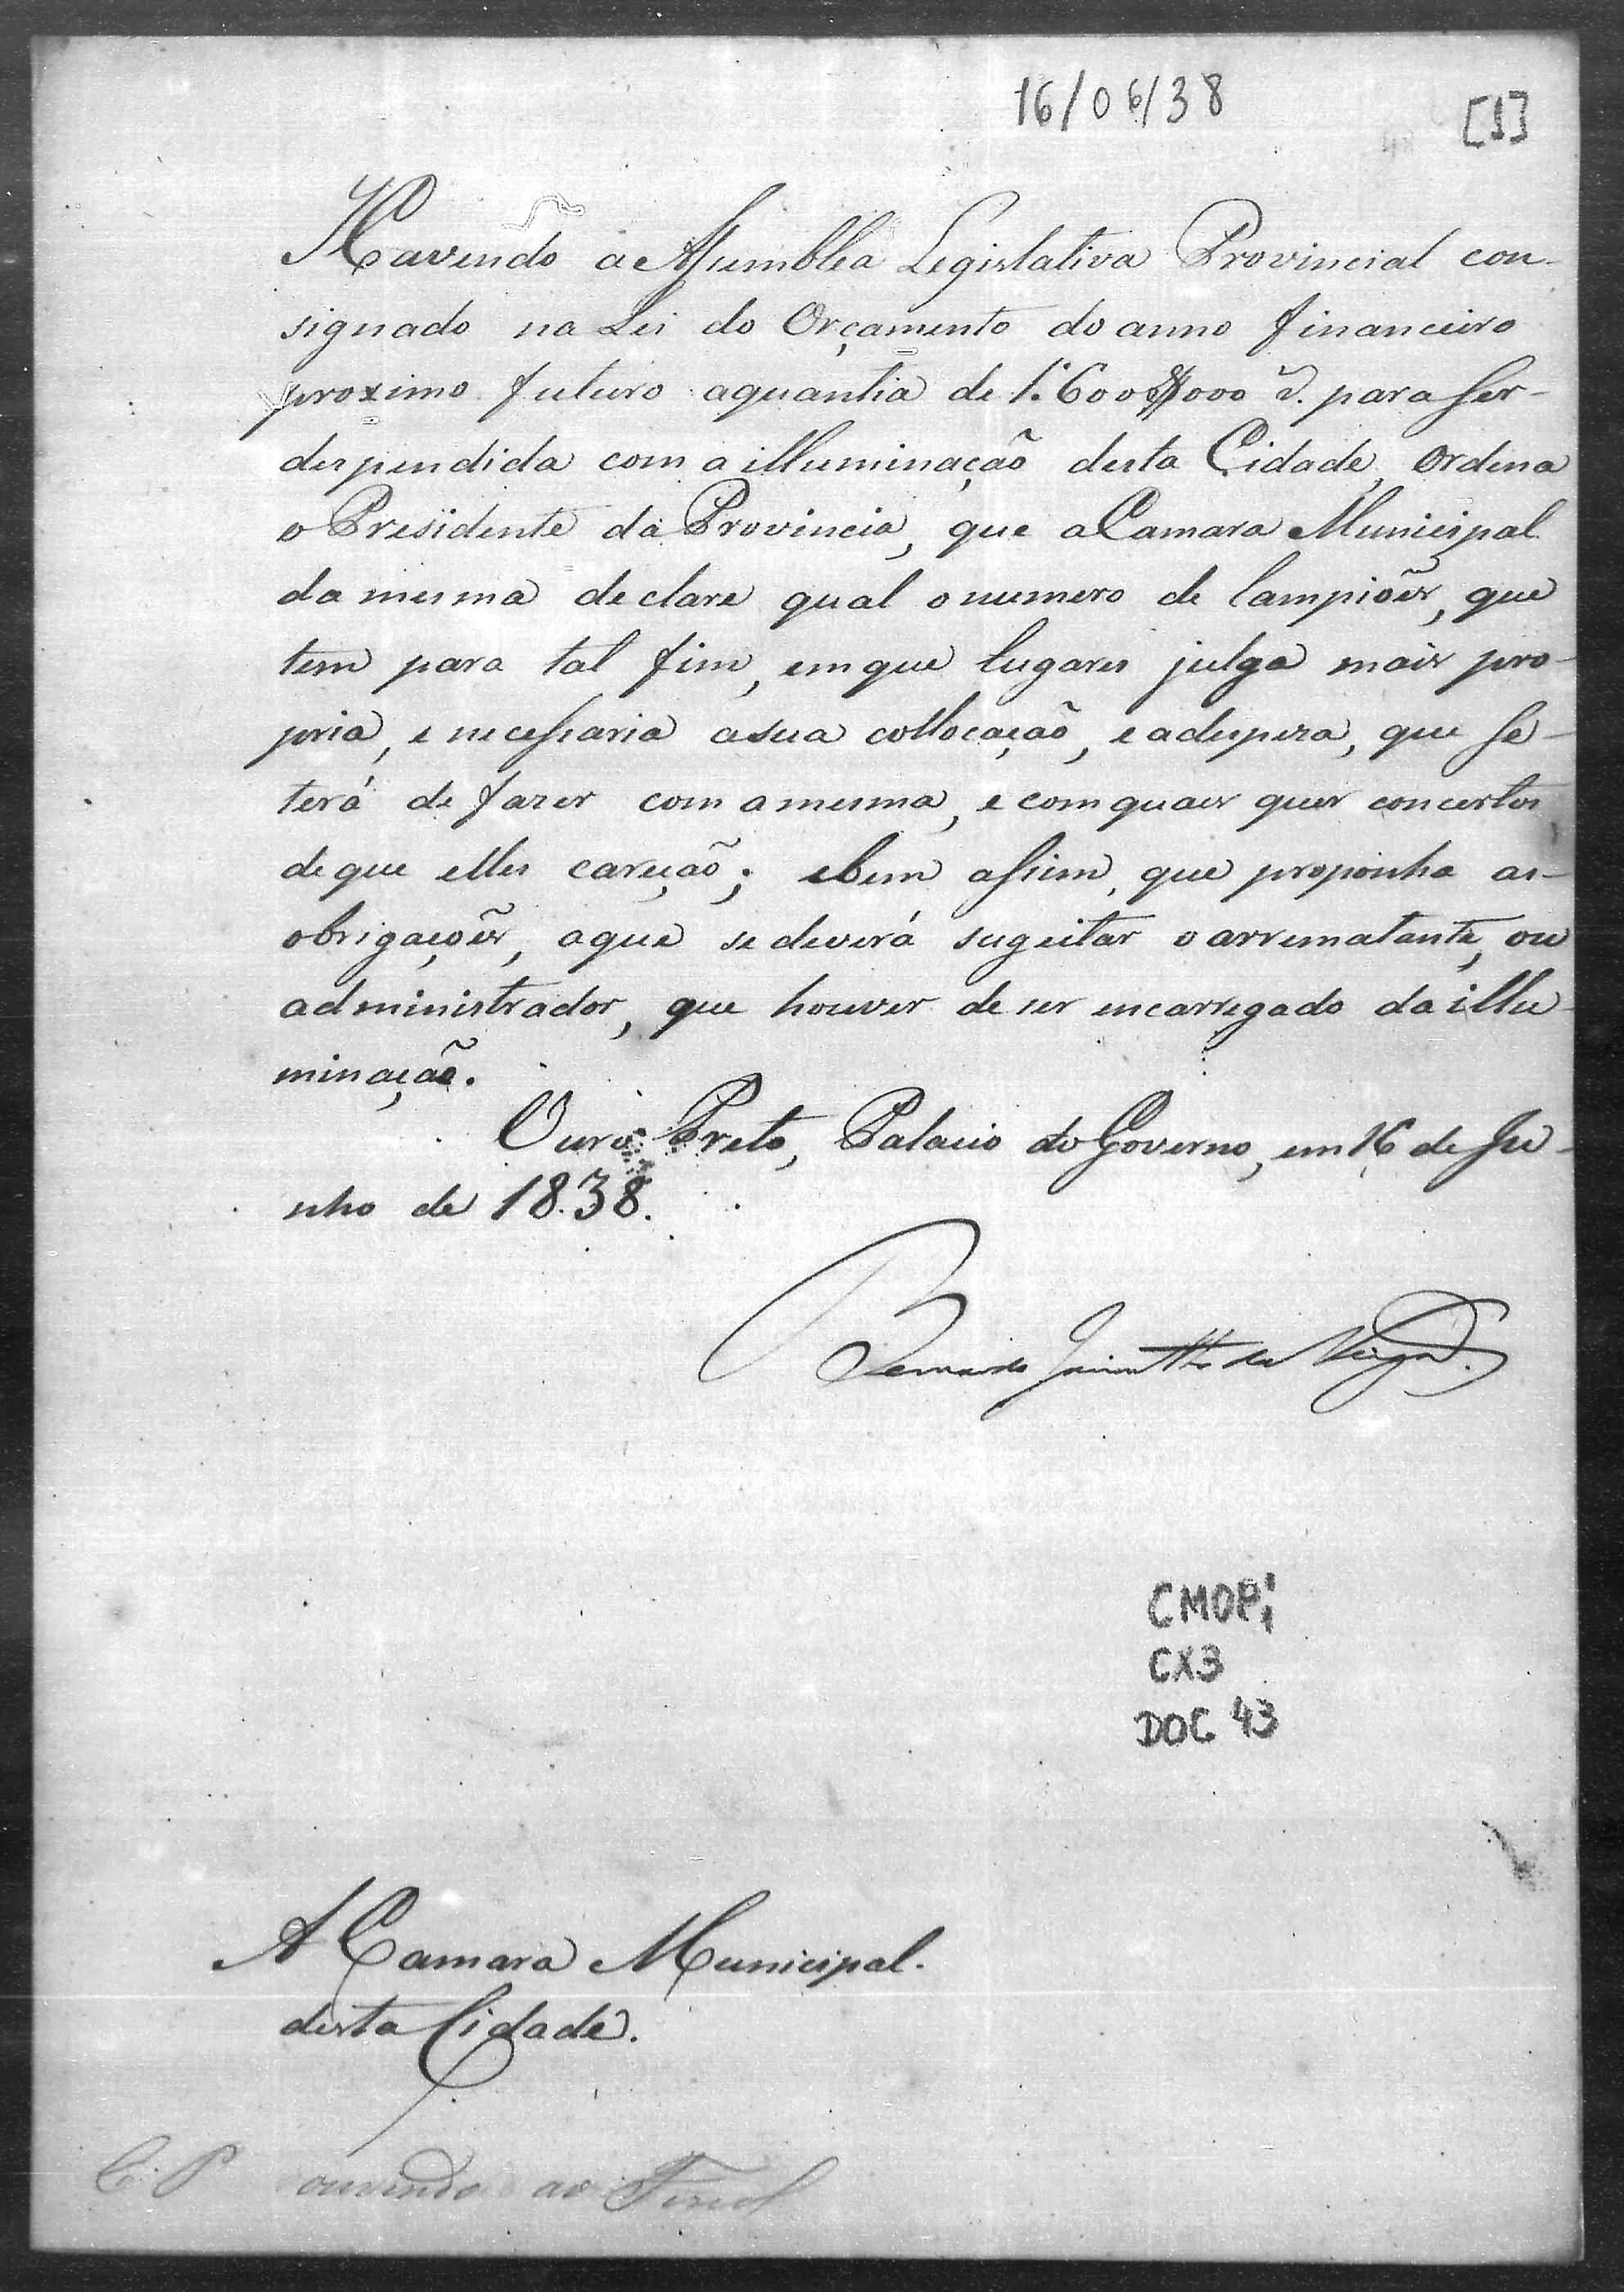 16/06/38
[1]
Havendo a Assemblea Legislativa Provincial con-
signado na Lei do Orçamento do anno financeiro
proximo futuro aquantia de 1:600$000 r̃. para ser
despendida com a illuminação desta Cidade, Ordena
o Presidente da Provincia, que a Camara Municipal
da mesma declare qual o numero de lampiões, que
tem para tal fim, em que lugares julga mais pro-
pria, e necessaria a sua collocação, e a despeza, que se
terá de fazer com a mesma, e com quaes quer concertos
de que elles careção; e bem assim, que proponha as
obrigações, a que se deverá sugeitar o arrematante, ou
administrador, que houver de ser encarregado da illu-
minação.
Ouro Preto, Palacio do Governo, em 16 de Ju-
nho de 1838.
Bernardo Jacintho da Veiga.
CMOP
CX3
DOC 43
A Camara Municipal.
desta Cidade.
C. P ouvindo ao Fiscal